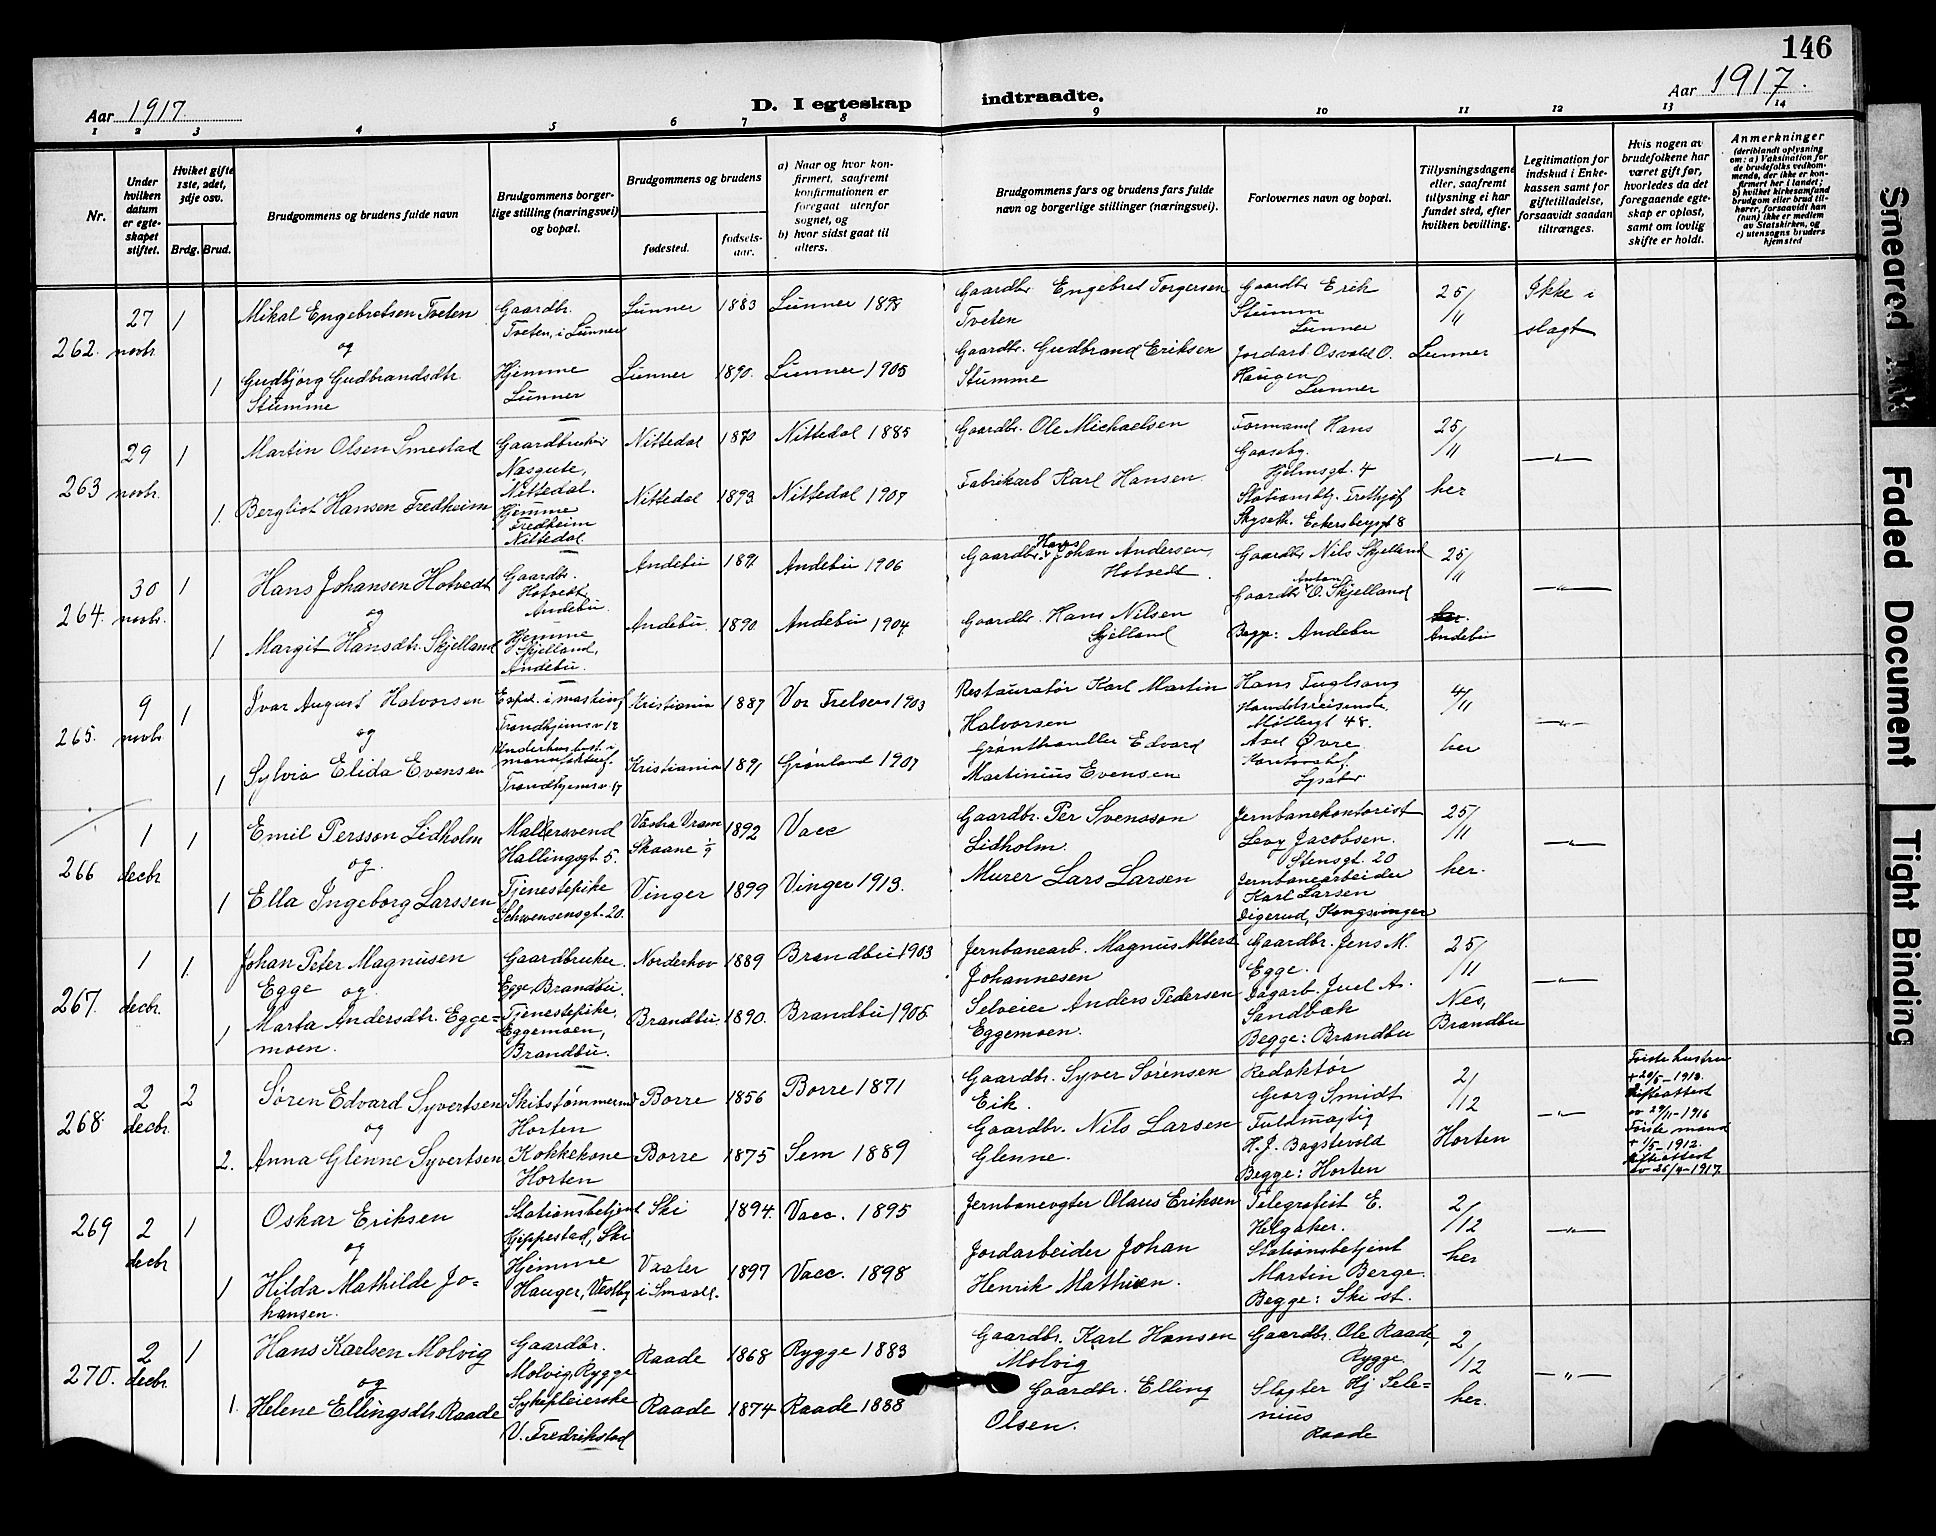 146
Aar 1917.
D. I egteskap
indtraadte.
Aar 1917.
1 2 3 4 5 6 7 8 9 10 11 12 13 14
Nr.
Under hvilken datum er egteskapet stiftet.
Hvilket gifte 1ste, 2det, 3dje osv.
Brdg. Brud.
Brudgommens og brudens fulde navn
Brudgommens borgerlige stilling (næringsvei) og bopæl.
Brudgommens og brudens
fødested.
fødselsaar.
a) Naar og hvor konfirmert, saafremt konfirmationen er foregaat utenfor sognet, og
b) hvor sidst gaat til alters.
Brudgommens fars og brudens fars fulde navn og borgerlige stillinger (næringsvei).
Forlovernes navn og bopæl.
Tillysningsdagene eller, saafremt tillysning ei har fundet sted, efter hvilken bevilling.
Legitimation for indskud i Enkekassen samt for giftetilladelse, forsaavidt saadan tiltrænges.
Hvis nogen av brudefolkene har været gift før, hvorledes da det foregaaende egteskap er opløst, samt om lovlig skifte er holdt.
Anmerkninger
(deriblandt oplysning om: a) Vaksination for de brudefolks vedkommende, der ikke er konfirmert her i landet; b) hvilket kirkesamfund brudgom eller brud tilhører, forsaavidt han (hun) ikke er medlem av Statskirken, og c) utensogns bruders hjemsted
262. 27 novbr. 1
Mikal Engebretsen Tveten
Gaardbr. Tveten, i Lunner
Lunner 1883 Lunner 1898
Gaardbr Engebret Torgersen Tveten
Gaardbr Erik Stumm Lunner
25/11
Ikke i slagt
og
1 Gudbjörg Gudbrandsdtr. Stumme
Hjemme Lunner
Lunner 1890. Lunner 1905
Gaardbr. Gudbrand Eriksen Stumme
Jordarb Osvald O. Haugen Lunner
Lunner
263 29 novbr. 1
Martin Olsen Smestad
Gaardbruker Nittedal.
Nittedal 1870 Nittedal 1885
Gaardbr. Ole Michaelsen
Formand Hans Gaaseby. Hjelmsgt. 4
25/11
—"—
1. Bergliot Hansen Fredheim
Hjemme Fredheim Nittedal
Nittedal 1893. Nittedal 1907
Fabrikarb Karl Hansen
Stationsbtj. Skyseth. Eckersbergsgt 8
her
264. 30 novbr. 1
Hans Johansen Hotvedt
Gaardbr. Hotvedt Andebu.
Andebu 1891 Andebu 1906
Gaardbr. Hans Johan Andersen, Hotvedt.
Gaardbr Nils Skjelland
25/11
—"—
og
1 Margit Hansdtr. Skjelland
Hjemme Skjelland, Andebu.
Andebu. 1890 Andebu 1904
Gaardbr. Hans Nilsen Sjelland
Gaardbr Anton O. Skjelland
Begge: Andebu
Andebu
265. 9 novbr 1
Ivar August Halvorsen
Trondhjemsv 12
Kristiania 1887 Vor Frelsers 1903
Restauratør Karl Martin Halvorsen
Hans Fuglsang Handelsreisende, Møllergt 48.
4/11
—"—
og
1 Sylvia Elida Evensen
Trondhjemsv 17
Kristiania 1891 Grønland 1907
Grønthandler Edvard Martinius Evensen
Axel Øvre
her
266 1 decbr 1
Emil Persson Lidholm
Malersvend Hallingsgt. 5.
Västra Vram Skaane 1892 Vacc
Gaardbr. Per Svensson Lidholm.
Jernbanekontorist Levy Jacobsen. Stensgt. 20
25/11
—"—
og.
1 Ella Ingeborg Larssen
Tjenestepike Schwensensgt. 20.
Vinger 1899 Vinger 1913.
Murer Lars Larsen
Jernbanearbeider Karl Larsen Digerud, Kongsvinger
her.
267. 1 decbr. 1
Johan Peter Magnusen Egge og.
Gaardbruker. Egge, Brandbu.
Norderhov 1889 Brandbu 1903
Jernbanearb. Magnus Albert Johannesen
Gaardbr. Jens M. Egge.
25/11
—"—
1 Marta Andersdtr. Eggemoen.
Tjenestepike, Eggemoen, Brandbu.
Brandbu. 1890. Brandbu 1905.
Selveier Anders Pedersen Eggemoen.
Dagarb. Juel A. Sandbæk
Begge: Brandbu
Nes, Brandbu
268. 2 decbr. 2
Søren Edvard Syvertsen
Skibstømmermd Horten
Borre 1856 Borre 1871
Gaardbr. Syver Sørensen Eik.
Redaktør Georg Smidt
2/12
—"—
Første hustru + 20/5-1913. Skifteattest av 29/11-1916
og
2. Anna Glenne Syvertsen
Kokkekone Horten
Borre 1875 Sem 1889
Gaardbr. Nils Larsen Glenne.
Fuldmægtig H. J. Bogstevold
Begge: Horten
Horten
Første mand + 1/5-1912. Skifteattest av 25/4-1917.
269 2 decbr 1
Oskar Eriksen
Stationsbetjent Kjeppestad, Ski
Ski 1894. Vacc. 1895
Jernbanevogter Olaus Eriksen
Telegrafist E. Helgaker.
2/12
—"—
og
1 Hilda Mathilde Johansen.
Hjemme Hauger, Vestby
Vaaler i Smaal. 1897 Vacc. 1898
Jordarbeider Johan Henrik Mathisen.
Stationsbetjent Martin Berge.
Begge: Ski st.
her
270. 2 decbr. 1
Hans Karlsen Molvig
Gaardbr. Molvig, Rygge
Raade 1868 Rygge 1883
Gaardbr. Karl Hansen Molvig
Gaardbr. Ole Raade, Rygge
2/12
—"—
og
1. Helene Ellingsdtr. Raade
Sykepleierske V. Fredrikstad
Raade 1874 Raade 1888
Gaardbr. Elling Olsen.
Slagter Hj Selenius Raade
her.
Smeared Ink
Faded Document
Tight Binding